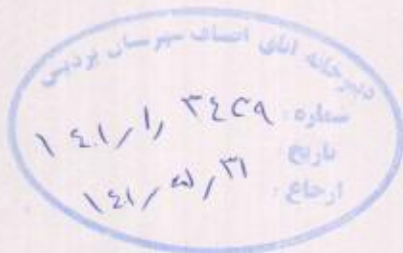 دبیرخانه اتاق اصناف شهرستان پردیس
شماره: ۱۴۰۱/۱/۳۴۲۹
تاریخ ۱۴۰۱/۰۵/۳۱
ارجاع: